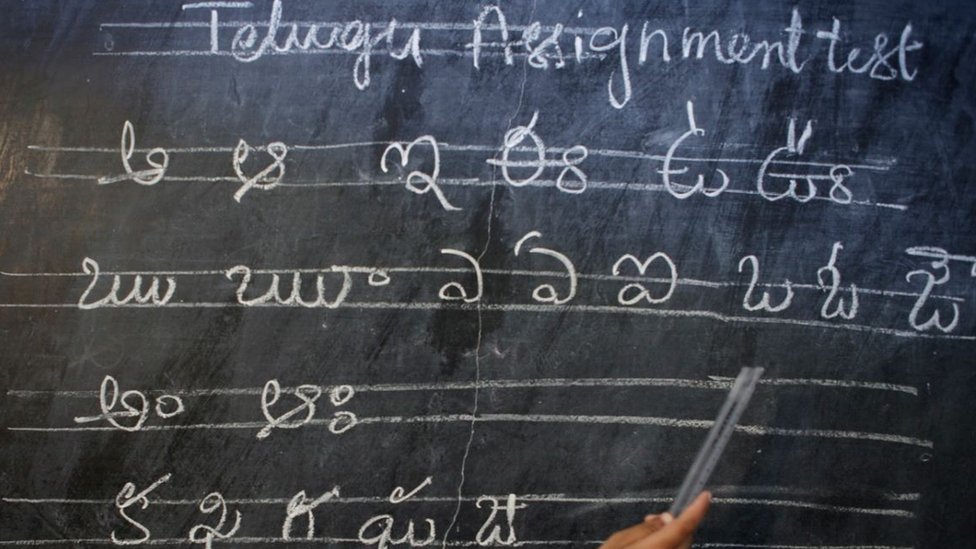 Telugu Assignment test
అ ఆ ఇ ఈ ఉ ఊ
ఋ ౠ ఎ ఏ ఐ ఒ ఓ ఔ
అం అః
క ఖ గ ఘ జ